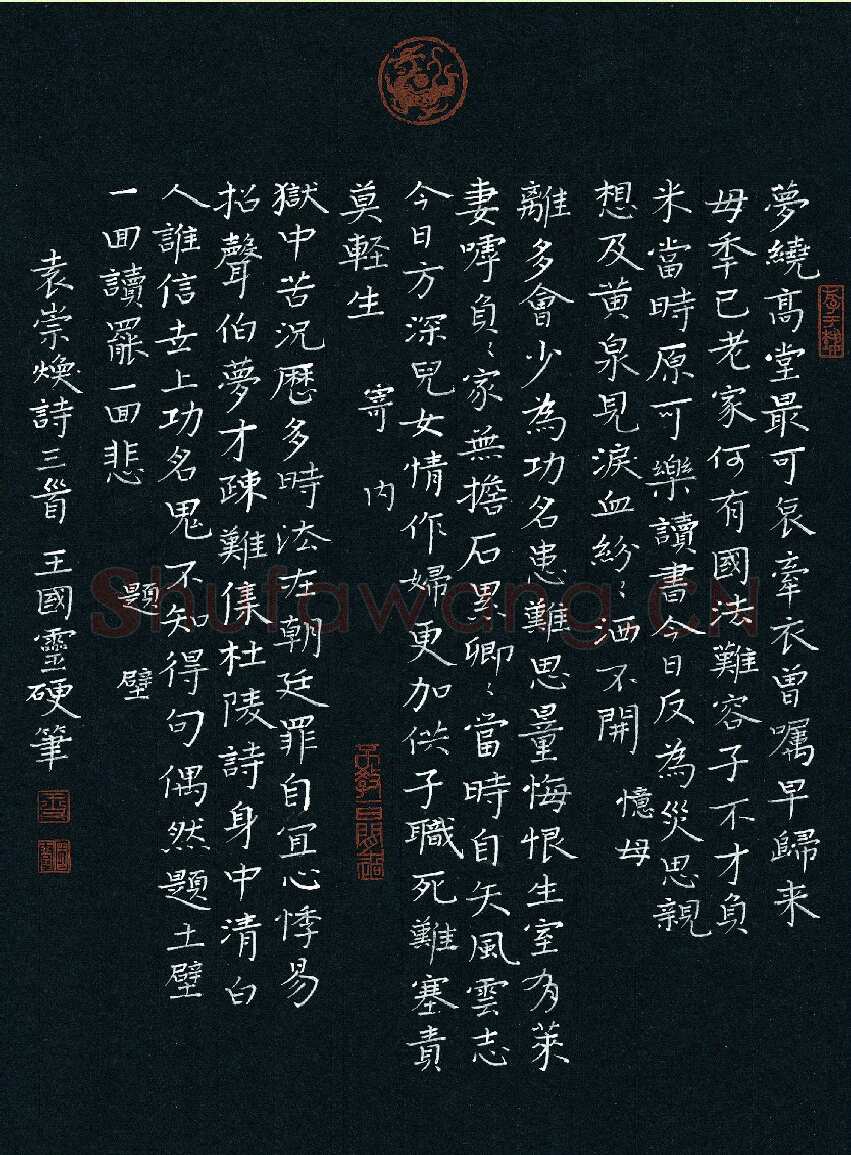 夢繞高堂最可哀牽衣曾囑早歸来
母年已老家何有國法難容子不才負
米當時原可樂讀書今日反為災思親
想及黃泉見淚血紛〻洒不開 憶母
離多會少為功名患難思量悔恨生室有萊
妻呼負〻家無擔石累卿〻當時自矢風雲志
今日方深兒女情作婦更加供子職死難塞責
莫輕生 寄內
獄中苦況歷多時法在朝廷罪自宜心悸易
招聲伯夢才疎難集杜陵詩身中清白
人誰信世上功名鬼不知得句偶然題土壁
一回讀罷一回悲 題壁
袁崇煥詩三首 王國靈硬筆
Shufawang.CN